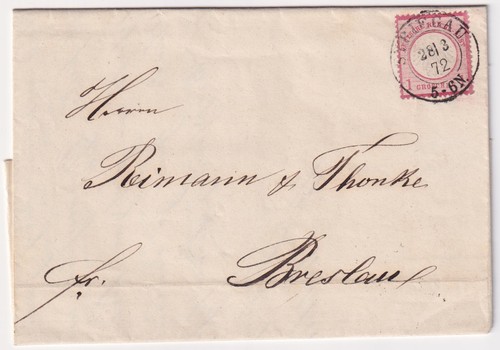 STRIEGAU
28/3
72
5-6N.
1 GROSCHEN
Herrn
Reimann & Thonke
Breslau
fr.